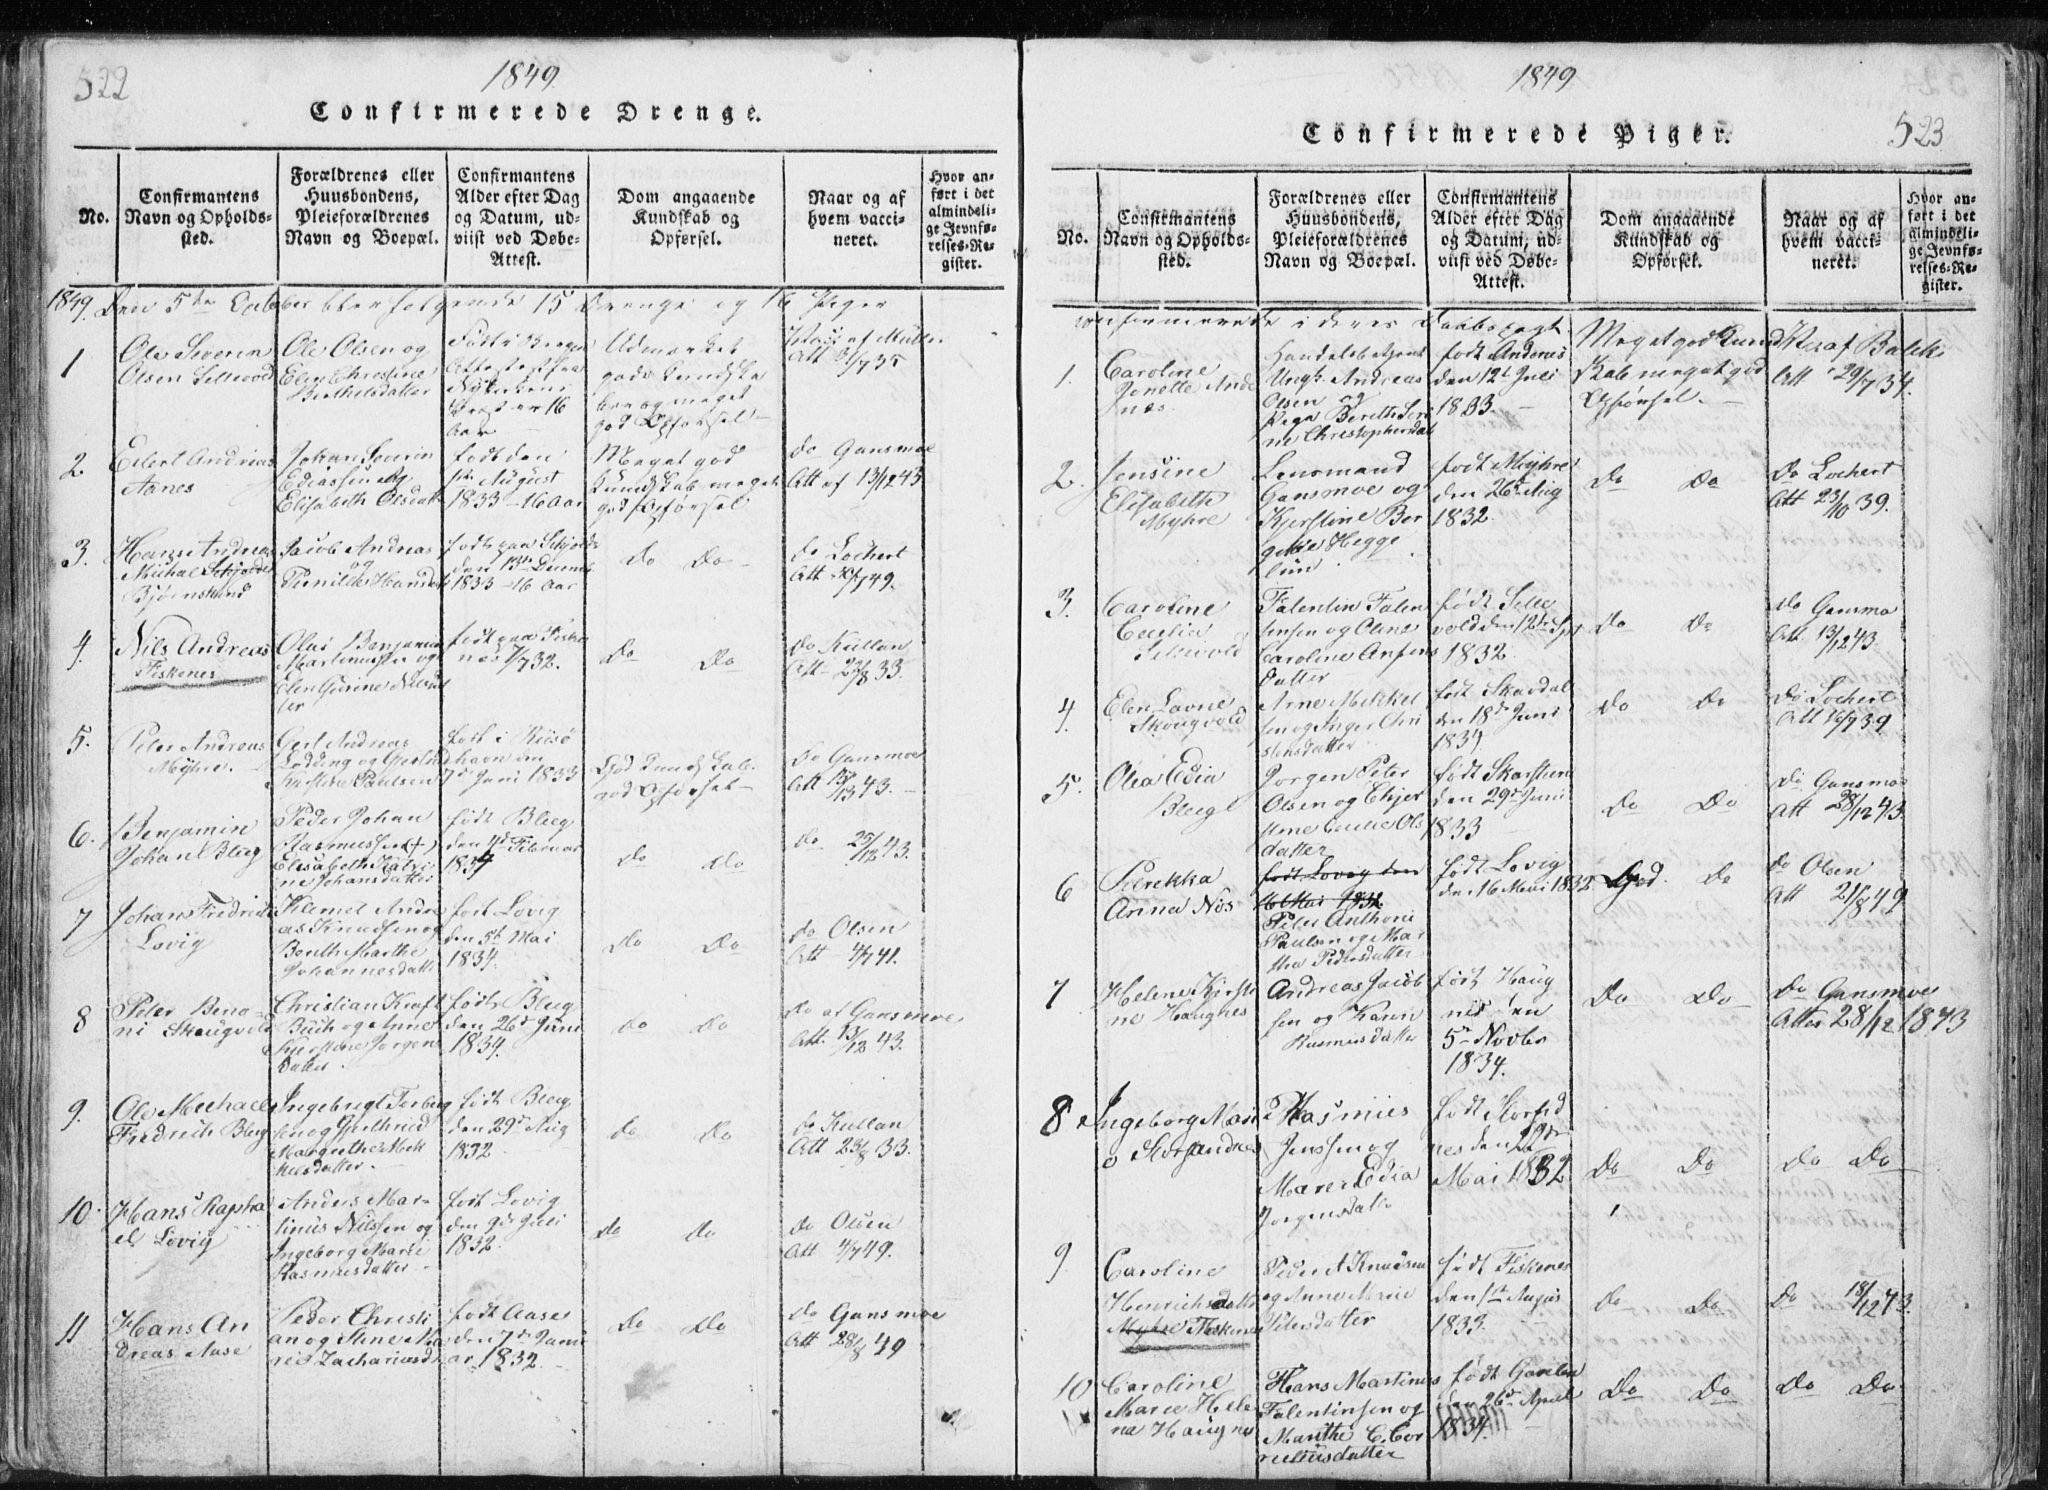 522
1849
Confirmerede Drenge.
No.
Confirmantens
Navn og Opholds-
sted.
Forældrenes eller
Huusbondens,
Pleieforældrenes
Navn og Boepæl.
Confirmantens
Alder efter Dag
og Datum, ud-
viist ved Døbe-
Attest.
Dom angaaende
Kundskab og
Opførsel.
Naar og af
hvem vacci-
neret.
Hvor an-
ført i det
almindeli-
ge Jevnfø-
relses-Re-
gister.
1849. Den 5te October blev følgende 15 Drenge og 16 Piger
1
Ole Severin
Olsen Sellevold
Ole Olsen og
Elen Christine
Berthelsdatter
Født i Bergen
16
Aar
Udmærket
gode Kundska
ber og meget
god Opførsel
Vacc af
Att 35
2.
Eilert Andreas
Aanes
Johan Severin
og
Elisabeth Olsdatt
født den
August
1833 - 16 Aar
Meget god
Kundskab meget
god Opførsel
do Gansmoe
Att af 13/12 43
3.
Hans Andreas
Michal
Jacob Andreas
og
Pernille Hansdat
født paa
den 13de Decemb
1833 - 16 Aar
Do Do
do Lochert
Att 49.
4.
Nils Andreas
Fiskenes
Olai Benjamin
Martinussen og
Elen Gurine Nilsdat
ter
født paa Fiske
nes 32.
Do Do
do Kullan
Att 23/8 33.
5.
Peter Andreas
Myhre.
Gert Andreas
Lodding og
Kirstine Paulsen
født i
havn den
7de Juni 1833
God Kundskab.
god Opførsel
do Gansmoe
Att 43.
6.
Benjamin
Johan Bleg
Peder Johan
Rasmussen (+)
Elisabeth Katri
ne Johansdatter
født Bleg
den 4de Februar
1834
Do Do
do 25/12 43.
7
Johan Fredrich
Lovig
Klemet Andre
as Knudsen og
Berith Marthe
Johannesdatt
født Lovig
den 5te Mai
1834.
Do Do
do Olsen
Att 4/7 41.
8
Peter Beno-
ni Skougvold
Christian Kraft
Buch og Anne
Kjerstine Jørgens
Datter.
født Bleg
den 26de Juni
1834.
Do Do
do af Gansmoe
Att. 13/12 43.
9.
Ole Michael
Fredrich Bleg
Ingebrigt Torberg
sen og
Margrethe Mik
kelsdatter.
født Bleg
den 29de Aug
1832
Do Do
do Kullan
Att 23/8 33.
10.
Hans Rapha
el Lovig
Anders Mar-
tinus Nilssen og
Ingeborg Marie
Rasmusdatter
født Lovig
den 9de Juli
1832.
Do Do
do Olsen
Att 4/7 49.
11
Hans An
dreas Aase
Peder Christi
an og Stine Ma
rie Zachariasd
født Aase
den 7de Janu
ar 1832.
Do Do
do Gansmoe
Att 28/8 49
1849
523
Confirmerede Piger.
No.
Confirmantens
Navn og Opholds-
sted.
Forældrenes eller
Huusbondens,
Pleieforældrenes
Navn og Boepæl.
Confirmantens
Alder efter Dag
og Datum, ud-
viist ved Døbe-
Attest.
Dom angaaende
Kundskab og
Opførsel.
Naar og af
hvem vacci-
neret.
Hvor an-
ført i det
almindeli-
ge Jevnfø-
relses-Re-
gister.
confirmerede i deres Daabspagt.
1.
Caroline
Jonette Ande
næs
Handelsbetjent
Ungk. Andreas
Olsen og
Pige Bereth Seri
ne Christophersdat
født Andenes
den 12te Juli
1833.
Meget god Kund
skab meget god
Opførsel.
Vac af Balcke
Att 29/7 34.
2.
Jensine
Elisabeth
Myhre
Lensmand
Gansmoe og
Kjerstine Ber
gitte Hegge
lün.
født Myhre
den 26de Aug
1832.
Do Do
Do Lochert
Att 23/10 39.
3.
Caroline
Cecilia
Sellevold
Falentin Falen
tinsen og Oline
Caroline
Datter
født Selle
vold den 12te Spt
1832
Do Do
do Gansmo
Att. 13/12 43.
4.
Elen Lovne
Skougvold
Arne Mikkel
sen og Inger Chri
stensdatter
født Skavdal
den 18de Juni
1834
Do Do
Do Lochert
Att 16/7 39
5.
Olea Edia
Bleg
Jørgen Peter
Olsen og Chjer
stine Cecilie Ols
datter
født Skarstein
den 29de Juni
1833
Do Do
Do Gansmoe
Att 28/12 43.
6
Perekka
Anna Nøs
født Lovig den
16de Mai 1832
Peter Anthoni
Paulsen og Mar
tha Pedersdatter
født Lovig
den 16 Mai 1832
God. Do
do Olsen
Att 21/8 49
7
Helene Kirsti
ne Haugnes
Andreas Jacob
sen og Karen
Rasmusdatter
født Haug
nes den
5te Novbr
1834.
Do Do
Do Gansmoe
Attes 28/12 1843
8
Ingeborg Mari
e Storsandnes
Rasmus
Jenssen og
Maren Edia
Jørgensdatte
født Storsd
nes den 22de
Mai 1832
Do Do
Do Do
9
Caroline
Henrichsdatter
Myhre Fiskenes
Peder A Knudsen
og Anne Marie
Petersdatter
født Fiskenes
den 1ste August
1833.
Do Do
Do 18/12 43.
10
Caroline
Marie Hele
na Haugnes
Hans Martinus
Falentinsen og
Marthe C. Cor
neliusdatter
født Gavelen
den 26de April
1834.
Do Do
Do Do